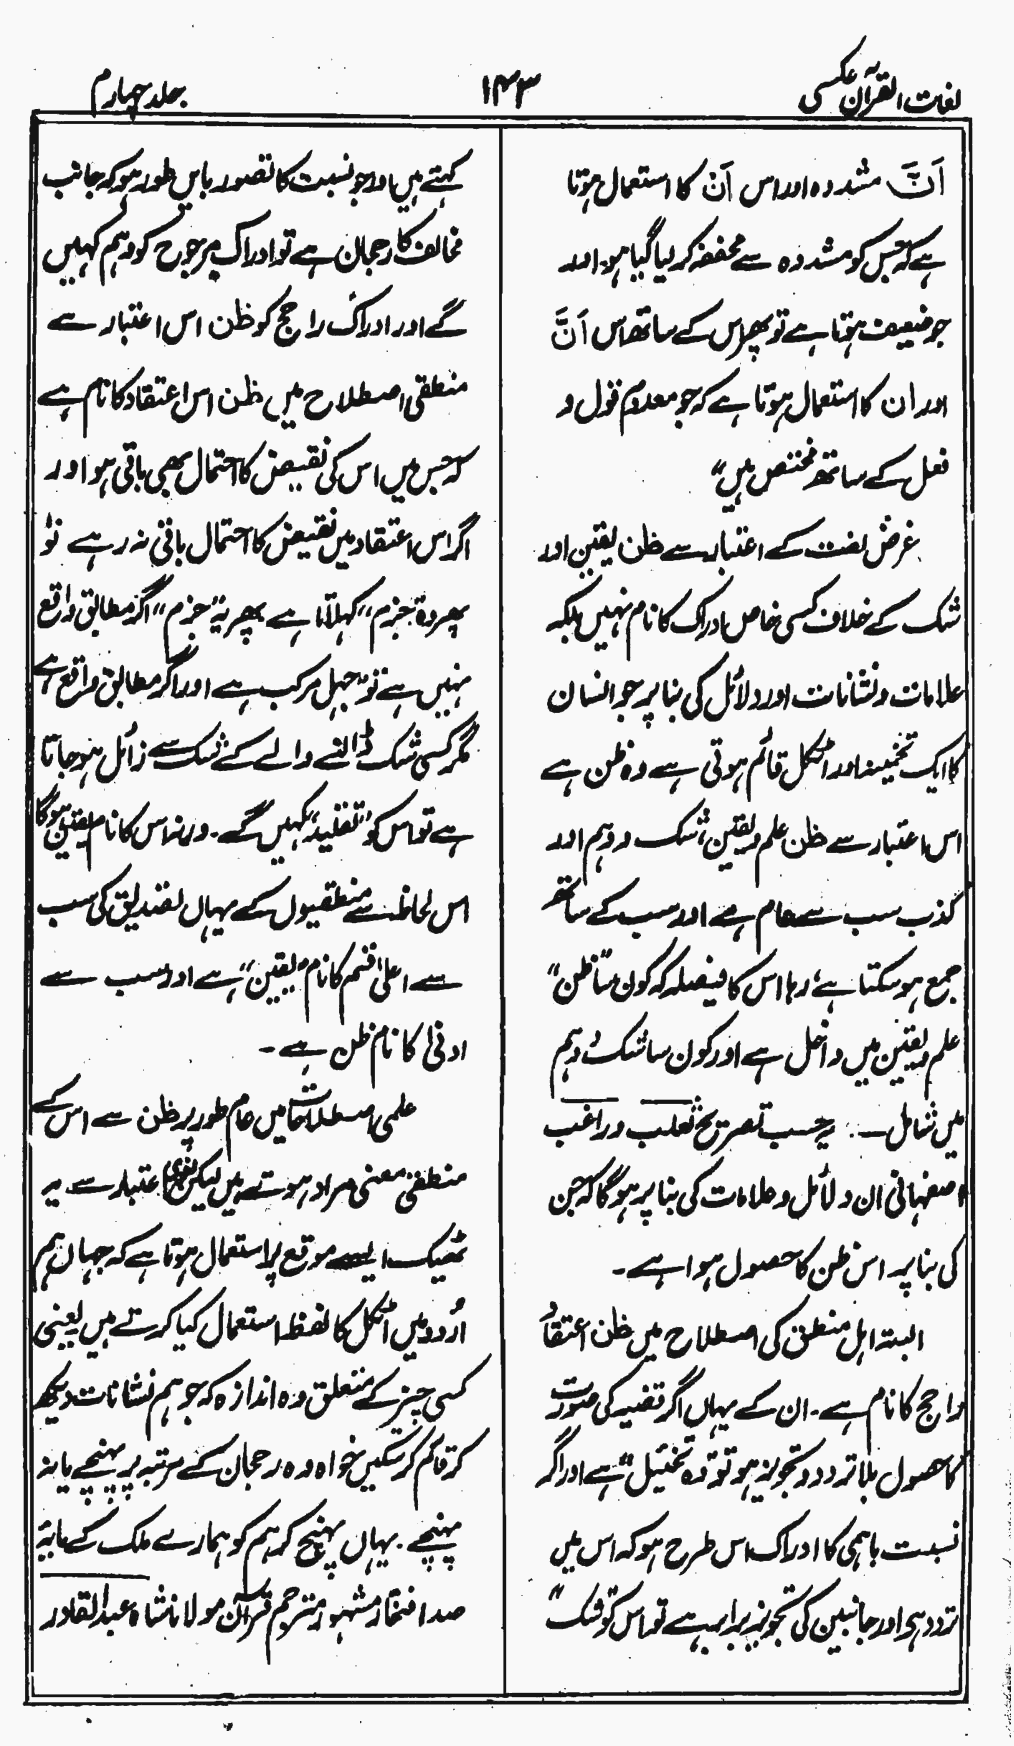 لغات القرآن عکسی
۱۴۳
جلد چہارم
اَنَّ مشددہ اور اس اَنْ کا استعمال ہوتا
ہے کہ جس کو مشددہ سے مخففہ کر لیا گیا ہو۔ اور
جو ضعیف ہوتا ہے تو پھر اس کے ساتھ اس اَنَّ
اور ان کا استعمال ہوتا ہے کہ جو معدوم قول و
فعل کے ساتھ مختص ہیں“
غرض لغت کے اعتبار سے ظن یقین اور
شک کے خلاف کسی خاص ادراک کا نام نہیں بلکہ
علامات و نشانات اور دلائل کی بنا پر جو انسان
کا ایک تخمینہ اور اٹکل قائم ہوتی ہے وہ ظن ہے
اس اعتبار سے ظن علم و یقین، شک و وہم اور
کذب سب سے عام ہے اور سب کے ساتھ
جمع ہو سکتا ہے، رہا اس کا فیصلہ کہ کون سا ظن“
علم و یقین میں داخل ہے اور کون سا شک و وہم
میں شامل ـــ: یہ حسب تصریح ثعلب و راغب
اصفہانی ان دلائل و علامات کی بنا پر ہوگا کہ جن
کی بنا پر اس ظن کا حصول ہوا ہے۔
البتہ اہل منطق کی اصطلاح میں ظن اعتقاد
راجح کا نام ہے۔ ان کے یہاں اگر قضیہ کی صورت
کا حصول بلا تردد و تجویز ہو تو وہ تخئیل“ ہے اور اگر
نسبت باہمی کا ادراک اس طرح ہو کہ اس میں
تردد ہی اور جانبین کی تجویز برابر ہے تو اس کو شک“
کہتے ہیں اور جو نسبت کا تصور بایں طور ہو کہ جانب
مخالف کا رجحان ہے تو ادراک مرجوح کو وہم کہیں
گے اور ادراک راجح کو ظن اس اعتبار سے
منطقی اصطلاح میں ظن اس اعتقاد کا نام ہے
کہ جس میں اس کی نقیض کا احتمال بھی باقی ہو اور
اگر اس اعتقاد میں نقیض کا احتمال باقی نہ رہے تو
پھر وہ ”جزم“ کہلاتا ہے پھر یہ ”جزم“ اگر مطابق واقع
نہیں ہے تو ”جہل مرکب ہے اور اگر مطابق واقع ہے
مگر کسی شک ڈالنے والے کے شک سے زائل ہو جاتا
ہے تو اس کو ”تقلید“ کہیں گے۔ ورنہ اس کا نام یقین ہوگا
اس لحاظ سے منطقیوں کے یہاں تصدیق کی سب
سے اعلیٰ قسم کا نام ”یقین“ ہے اور سب سے
ادنیٰ کا نام ظن ہے۔
علمی اصطلاحات میں عام طور پر ظن سے اس کے
منطقی معنی مراد ہوتے ہیں لیکن لغوی اعتبار سے یہ
ٹھیک ایسے موقع پر استعمال ہوتا ہے کہ جہاں ہم
اُردو میں اٹکل کا لفظ استعمال کیا کرتے ہیں یعنی
کسی چیز کے متعلق وہ اندازہ کہ جو ہم نشانات دیکھ
کر قائم کر سکیں خواہ وہ رجحان کے مرتبہ پر پہنچے یا نہ
پہنچے۔ یہاں پہنچ کر ہم کو ہمارے ملک کے مایۂ
صد افتخار مشہور مترجم قرآن مولانا شاہ عبدالقادر